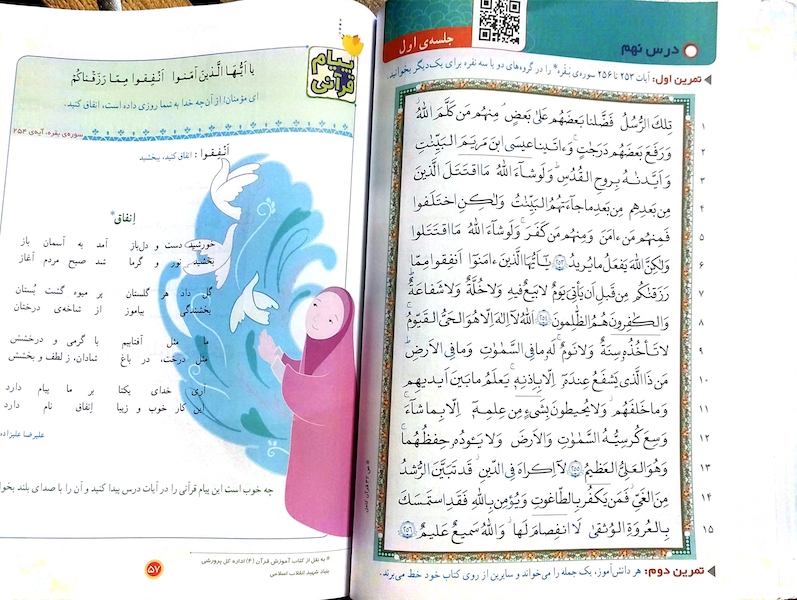 درس نهم
جلسه‌ی اول
تمرین اول: آیات ۲۵۳ تا ۲۵۶ سوره‌ی بَقَره* را در گروه‌های دو یا سه نفره برای یک‌دیگر بخوانید.
۱ تِلكَ الرُّسُلُ فَضَّلنا بَعضَهُم عَلىٰ بَعضٍ مِنهُم مَن كَلَّمَ اللّٰهُ
۲ وَ رَفَعَ بَعضَهُم دَرَجٰتٍ وَ ءاتَينا عيسَى ابنَ مَريَمَ البَيِّنٰتِ
۳ وَ اَيَّدنٰهُ بِروحِ القُدُسِ وَلَو شاءَ اللّٰهُ مَا اقتَتَلَ الَّذينَ
۴ مِن بَعدِهِم مِن بَعدِ ما جاءَتهُمُ البَيِّنٰتُ وَلٰكِنِ اختَلَفوا
۵ فَمِنهُم مَن ءامَنَ وَ مِنهُم مَن كَفَرَ وَلَو شاءَ اللّٰهُ مَا اقتَتَلوا
۶ وَلٰكِنَّ اللّٰهَ يَفعَلُ ما يُريدُ ۲۵۳ يٰاَيُّهَا الَّذينَ ءامَنوا اَنفِقوا مِمّا
۷ رَزَقنٰكُم مِن قَبلِ اَن يَأتِىَ يَومٌ لا بَيعٌ فيهِ وَلا خُلَّةٌ وَلا شَفاعَةٌ
۸ وَالكٰفِرونَ هُمُ الظّٰلِمونَ ۲۵۴ اَللّٰهُ لا اِلٰهَ اِلّا هُوَ الحَىُّ القَيّومُ
۹ لا تَأخُذُهُ سِنَةٌ وَلا نَومٌ لَهُ ما فِى السَّمٰوٰتِ وَ ما فِى الاَرضِ
۱۰ مَن ذَا الَّذى يَشفَعُ عِندَهُ اِلّا بِاِذنِهِ يَعلَمُ ما بَينَ اَيديهِم
۱۱ وَ ما خَلفَهُم وَلا يُحيطونَ بِشَىءٍ مِن عِلمِهِ اِلّا بِما شاءَ
۱۲ وَسِعَ كُرسِيُّهُ السَّمٰوٰتِ وَالاَرضَ وَلا يَـٔودُهُ حِفظُهُما
۱۳ وَ هُوَ العَلِىُّ العَظيمُ ۲۵۵ لا اِكراهَ فِى الدّينِ قَد تَبَيَّنَ الرُّشدُ
۱۴ مِنَ الغَىِّ فَمَن يَكفُر بِالطّاغوتِ وَ يُؤمِن بِاللّٰهِ فَقَدِ استَمسَكَ
۱۵ بِالعُروَةِ الوُثقىٰ لَا انفِصامَ لَها وَاللّٰهُ سَميعٌ عَليمٌ ۲۵۶
* ص ۴۲ قرآن کامل
تمرین دوم: هر دانش‌آموز، یک جمله را می‌خواند و سایرین از روی کتاب خود خط می‌برند.
پیام قرآنی
یا اَیُّهَا الَّذینَ آمَنوا اَنْفِقوا مِمّا رَزَقْناکُمْ
ای مؤمنان! از آن‌چه خدا به شما روزی داده است، انفاق کنید.
سوره‌ی بقره، آیه‌ی ۲۵۴
اَنْفِقوا : انفاق کنید، ببخشید
اِنفاق*
خورشید دست و دل‌باز آمد به آسمان باز
بخشید نور و گرما شد صبح مردم آغاز
گل داد هر گلستان پر میوه گشت بُستان
بخشندگی بیاموز از شاخه‌ی درختان
ما مثل آفتابیم با گرمی و درخشش
مثل درخت، در باغ شادان، ز لطف و بخشش
آری خدای یکتا بر ما پیام دارد
این کار خوب و زیبا اِنفاق نام دارد
علیرضا علیزاده
چه خوب است این پیام قرآنی را در آیات درس پیدا کنید و آن را با صدای بلند
* به نقل از کتاب آموزش قرآن (۴) اداره کل پرورشی
بنیاد شهید انقلاب اسلامی
۵۷